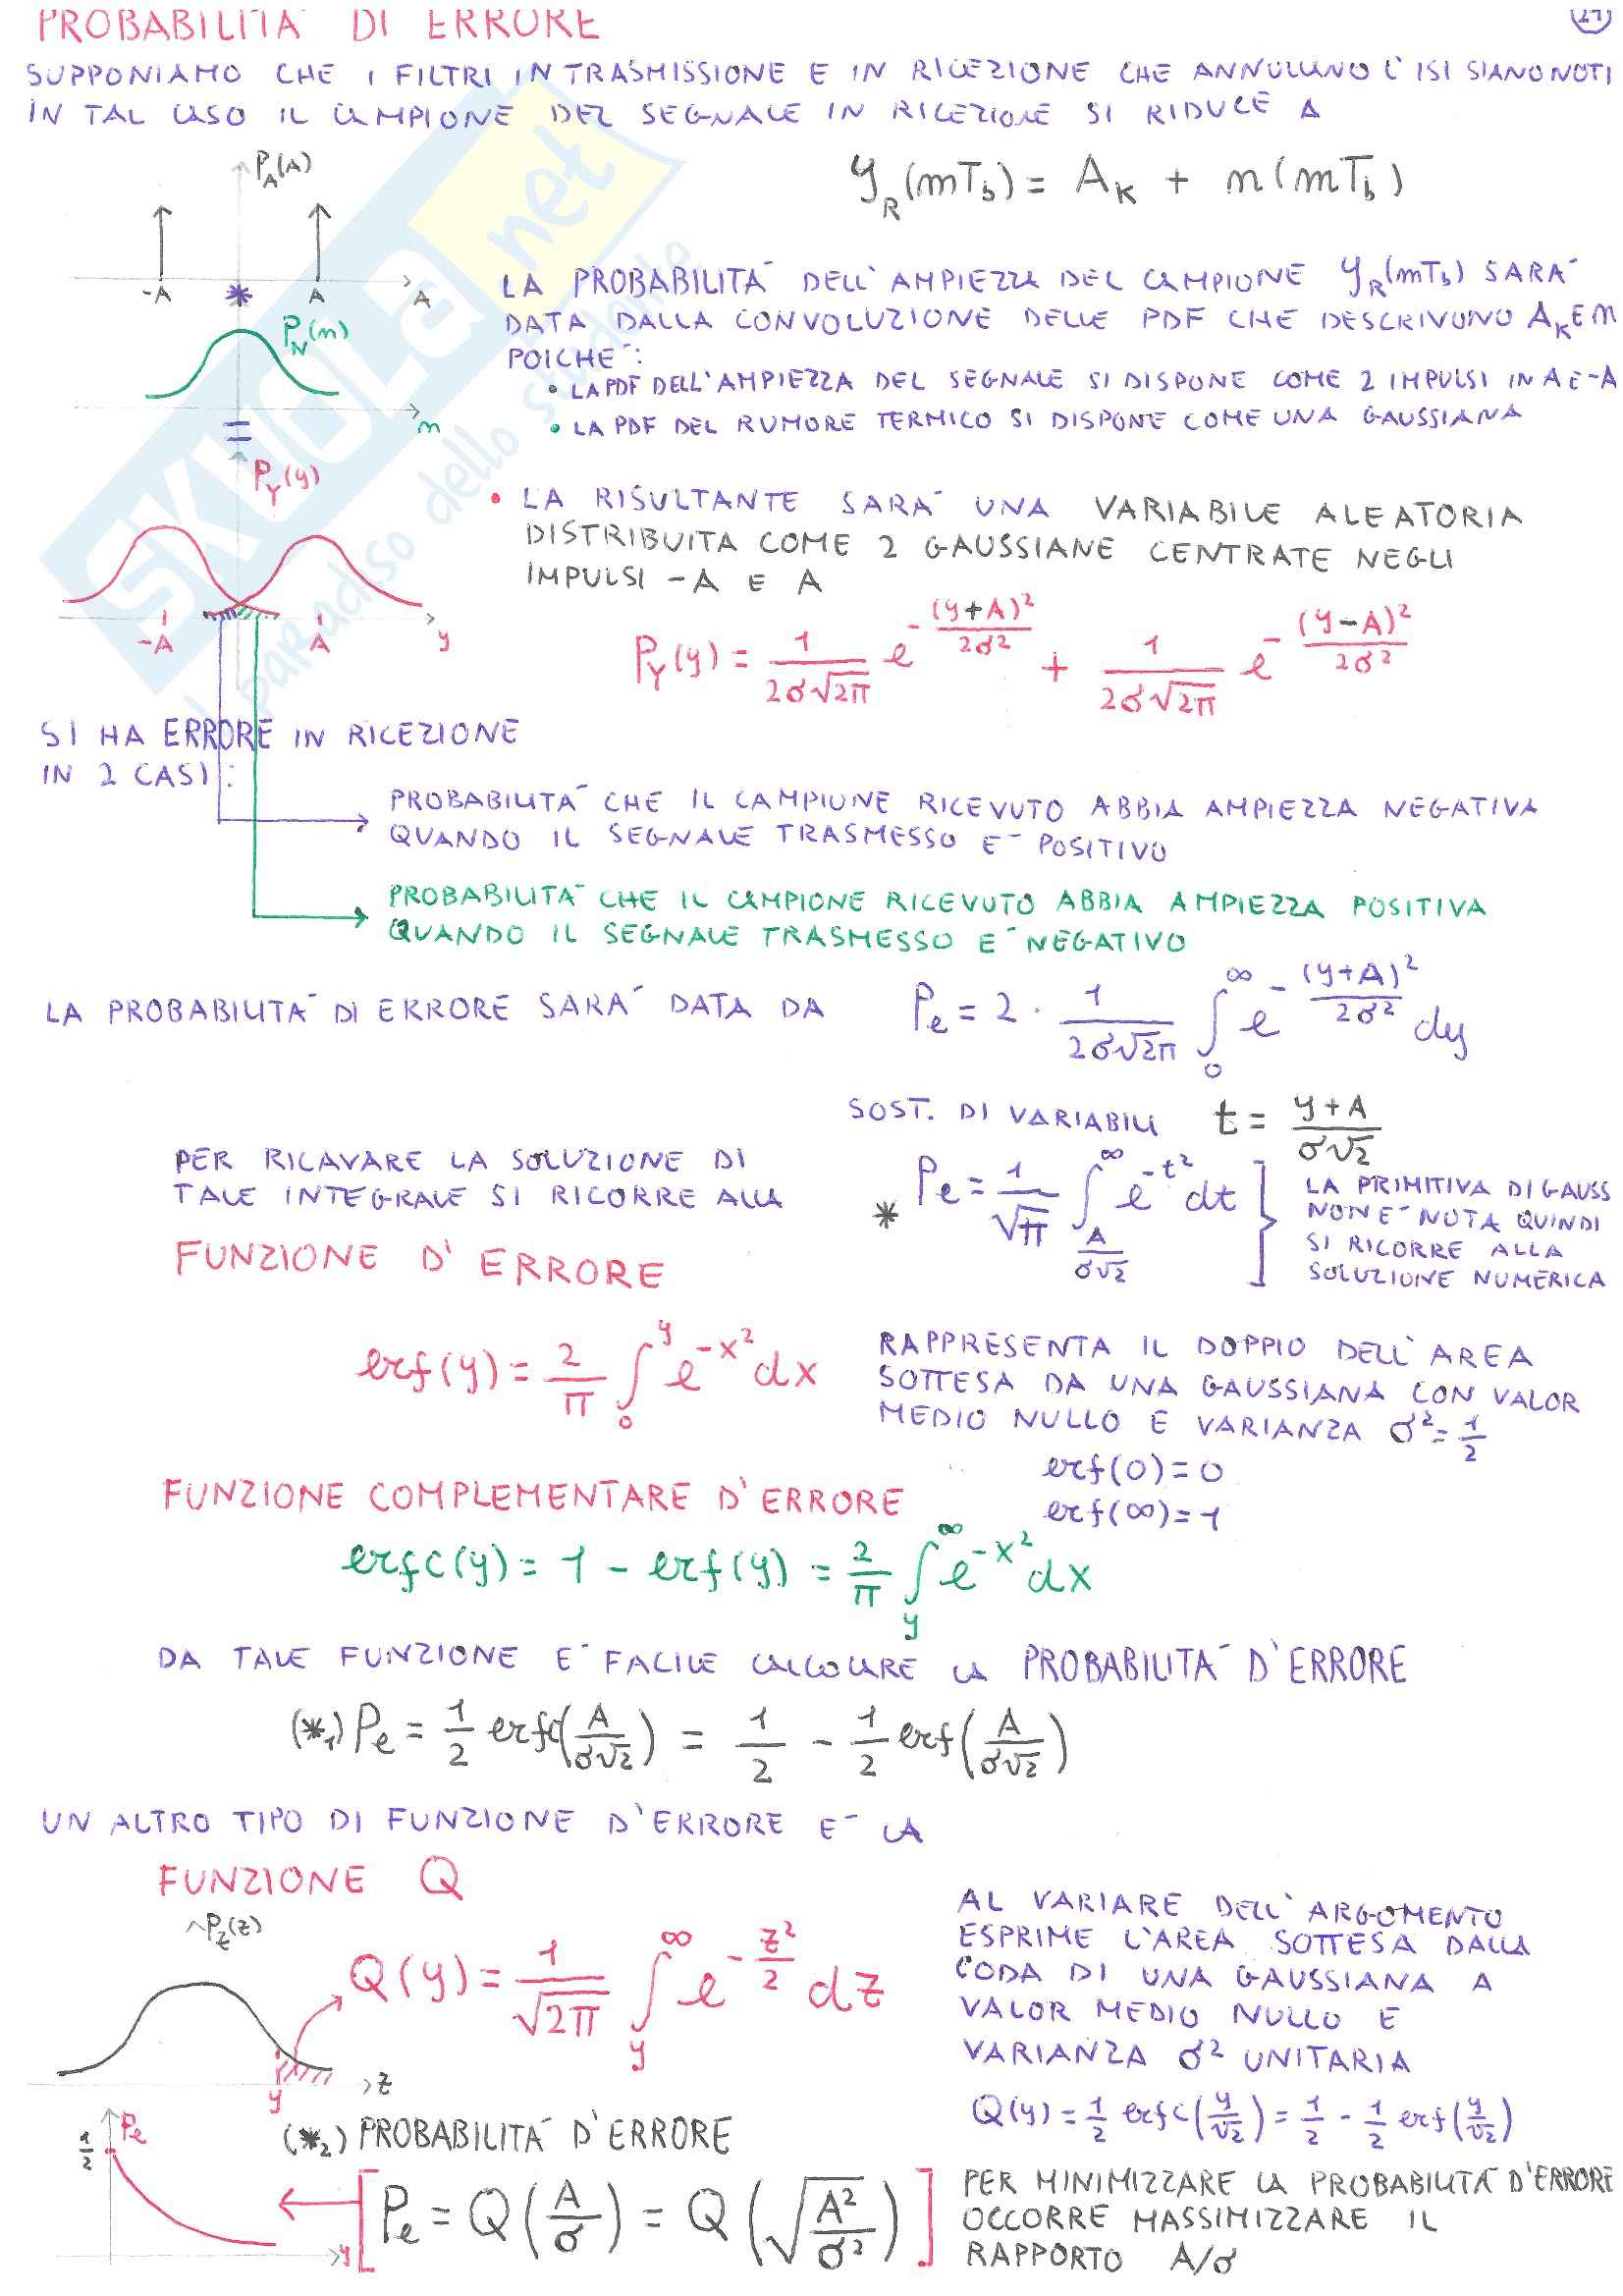 PROBABILITÀ DI ERRORE
27
SUPPONIAMO CHE I FILTRI IN TRASMISSIONE E IN RICEZIONE CHE ANNULLANO L'ISI SIANO NOTI
IN TAL CASO IL CAMPIONE DEL SEGNALE IN RICEZIONE SI RIDUCE A
P_A(A)
y_R(mT_b) = A_K + n(mT_b)
-A * A A
LA PROBABILITÀ DELL'AMPIEZZA DEL CAMPIONE y_R(mT_b) SARÀ
P_N(n)
DATA DALLA CONVOLUZIONE DELLE PDF CHE DESCRIVONO A_K E n
POICHÉ:
• LA PDF DELL'AMPIEZZA DEL SEGNALE SI DISPONE COME 2 IMPULSI IN A E -A
n
• LA PDF DEL RUMORE TERMICO SI DISPONE COME UNA GAUSSIANA
=
P_Y(y)
• LA RISULTANTE SARÀ UNA VARIABILE ALEATORIA
DISTRIBUITA COME 2 GAUSSIANE CENTRATE NEGLI
IMPULSI -A E A
-A A y
P_Y(y) = 1/(2σ√2π) e^(-(y+A)²/2σ²) + 1/(2σ√2π) e^(-(y-A)²/2σ²)
SI HA ERRORE IN RICEZIONE
IN 2 CASI:
PROBABILITÀ CHE IL CAMPIONE RICEVUTO ABBIA AMPIEZZA NEGATIVA
QUANDO IL SEGNALE TRASMESSO È POSITIVO
PROBABILITÀ CHE IL CAMPIONE RICEVUTO ABBIA AMPIEZZA POSITIVA
QUANDO IL SEGNALE TRASMESSO È NEGATIVO
LA PROBABILITÀ DI ERRORE SARÀ DATA DA P_e = 2 · 1/(2σ√2π) ∫_0^∞ e^(-(y+A)²/2σ²) dy
SOST. DI VARIABILI t = (y+A)/(σ√2)
PER RICAVARE LA SOLUZIONE DI
TALE INTEGRALE SI RICORRE ALLA
* P_e = 1/√π ∫_(A/σ√2)^∞ e^(-t²) dt
LA PRIMITIVA DI GAUSS
NON È NOTA QUINDI
SI RICORRE ALLA
SOLUZIONE NUMERICA
FUNZIONE D'ERRORE
erf(y) = 2/π ∫_0^y e^(-x²) dx
RAPPRESENTA IL DOPPIO DELL'AREA
SOTTESA DA UNA GAUSSIANA CON VALOR
MEDIO NULLO E VARIANZA σ² = 1/2
erf(0) = 0
erf(∞) = 1
FUNZIONE COMPLEMENTARE D'ERRORE
erfc(y) = 1 - erf(y) = 2/π ∫_y^∞ e^(-x²) dx
DA TALE FUNZIONE È FACILE CALCOLARE LA PROBABILITÀ D'ERRORE
(*1) P_e = 1/2 erfc(A/σ√2) = 1/2 - 1/2 erf(A/σ√2)
UN ALTRO TIPO DI FUNZIONE D'ERRORE È LA
FUNZIONE Q
P_Z(z)
Q(y) = 1/√2π ∫_y^∞ e^(-z²/2) dz
AL VARIARE DELL'ARGOMENTO
ESPRIME L'AREA SOTTESA DALLA
CODA DI UNA GAUSSIANA A
VALOR MEDIO NULLO E
VARIANZA σ² UNITARIA
y z
Q(y) = 1/2 erfc(y/√2) = 1/2 - 1/2 erf(y/√2)
1/2 P_e
(*2) PROBABILITÀ D'ERRORE
[P_e = Q(A/σ) = Q(√(A²/σ²))]
y
PER MINIMIZZARE LA PROBABILITÀ D'ERRORE
OCCORRE MASSIMIZZARE IL
RAPPORTO A/σ
SKUOLA.net
il paradiso dello studente